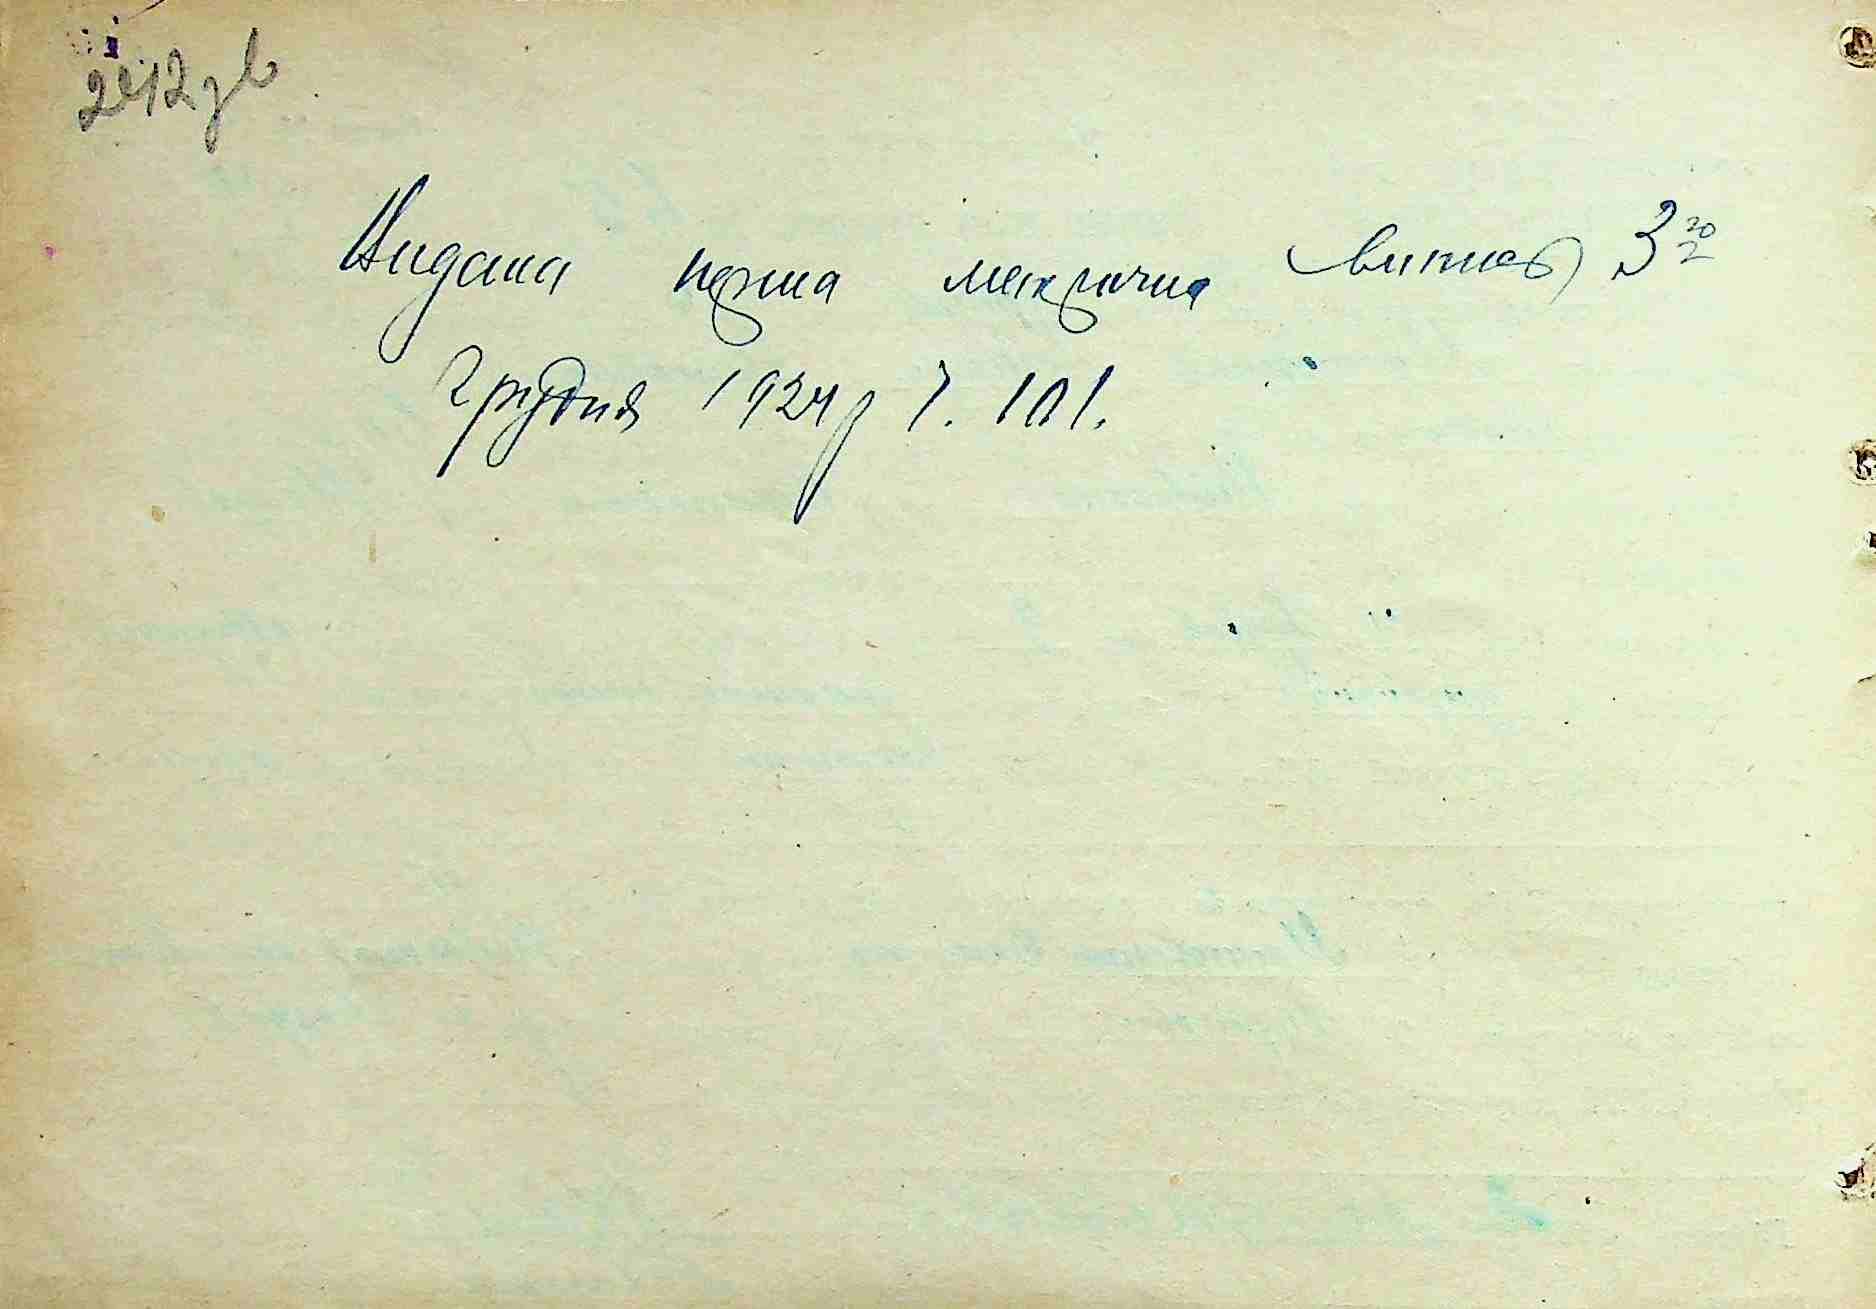 242 зв
Видана перша метрична виписъ 3го
Грудня 1924 р Ч. 101.